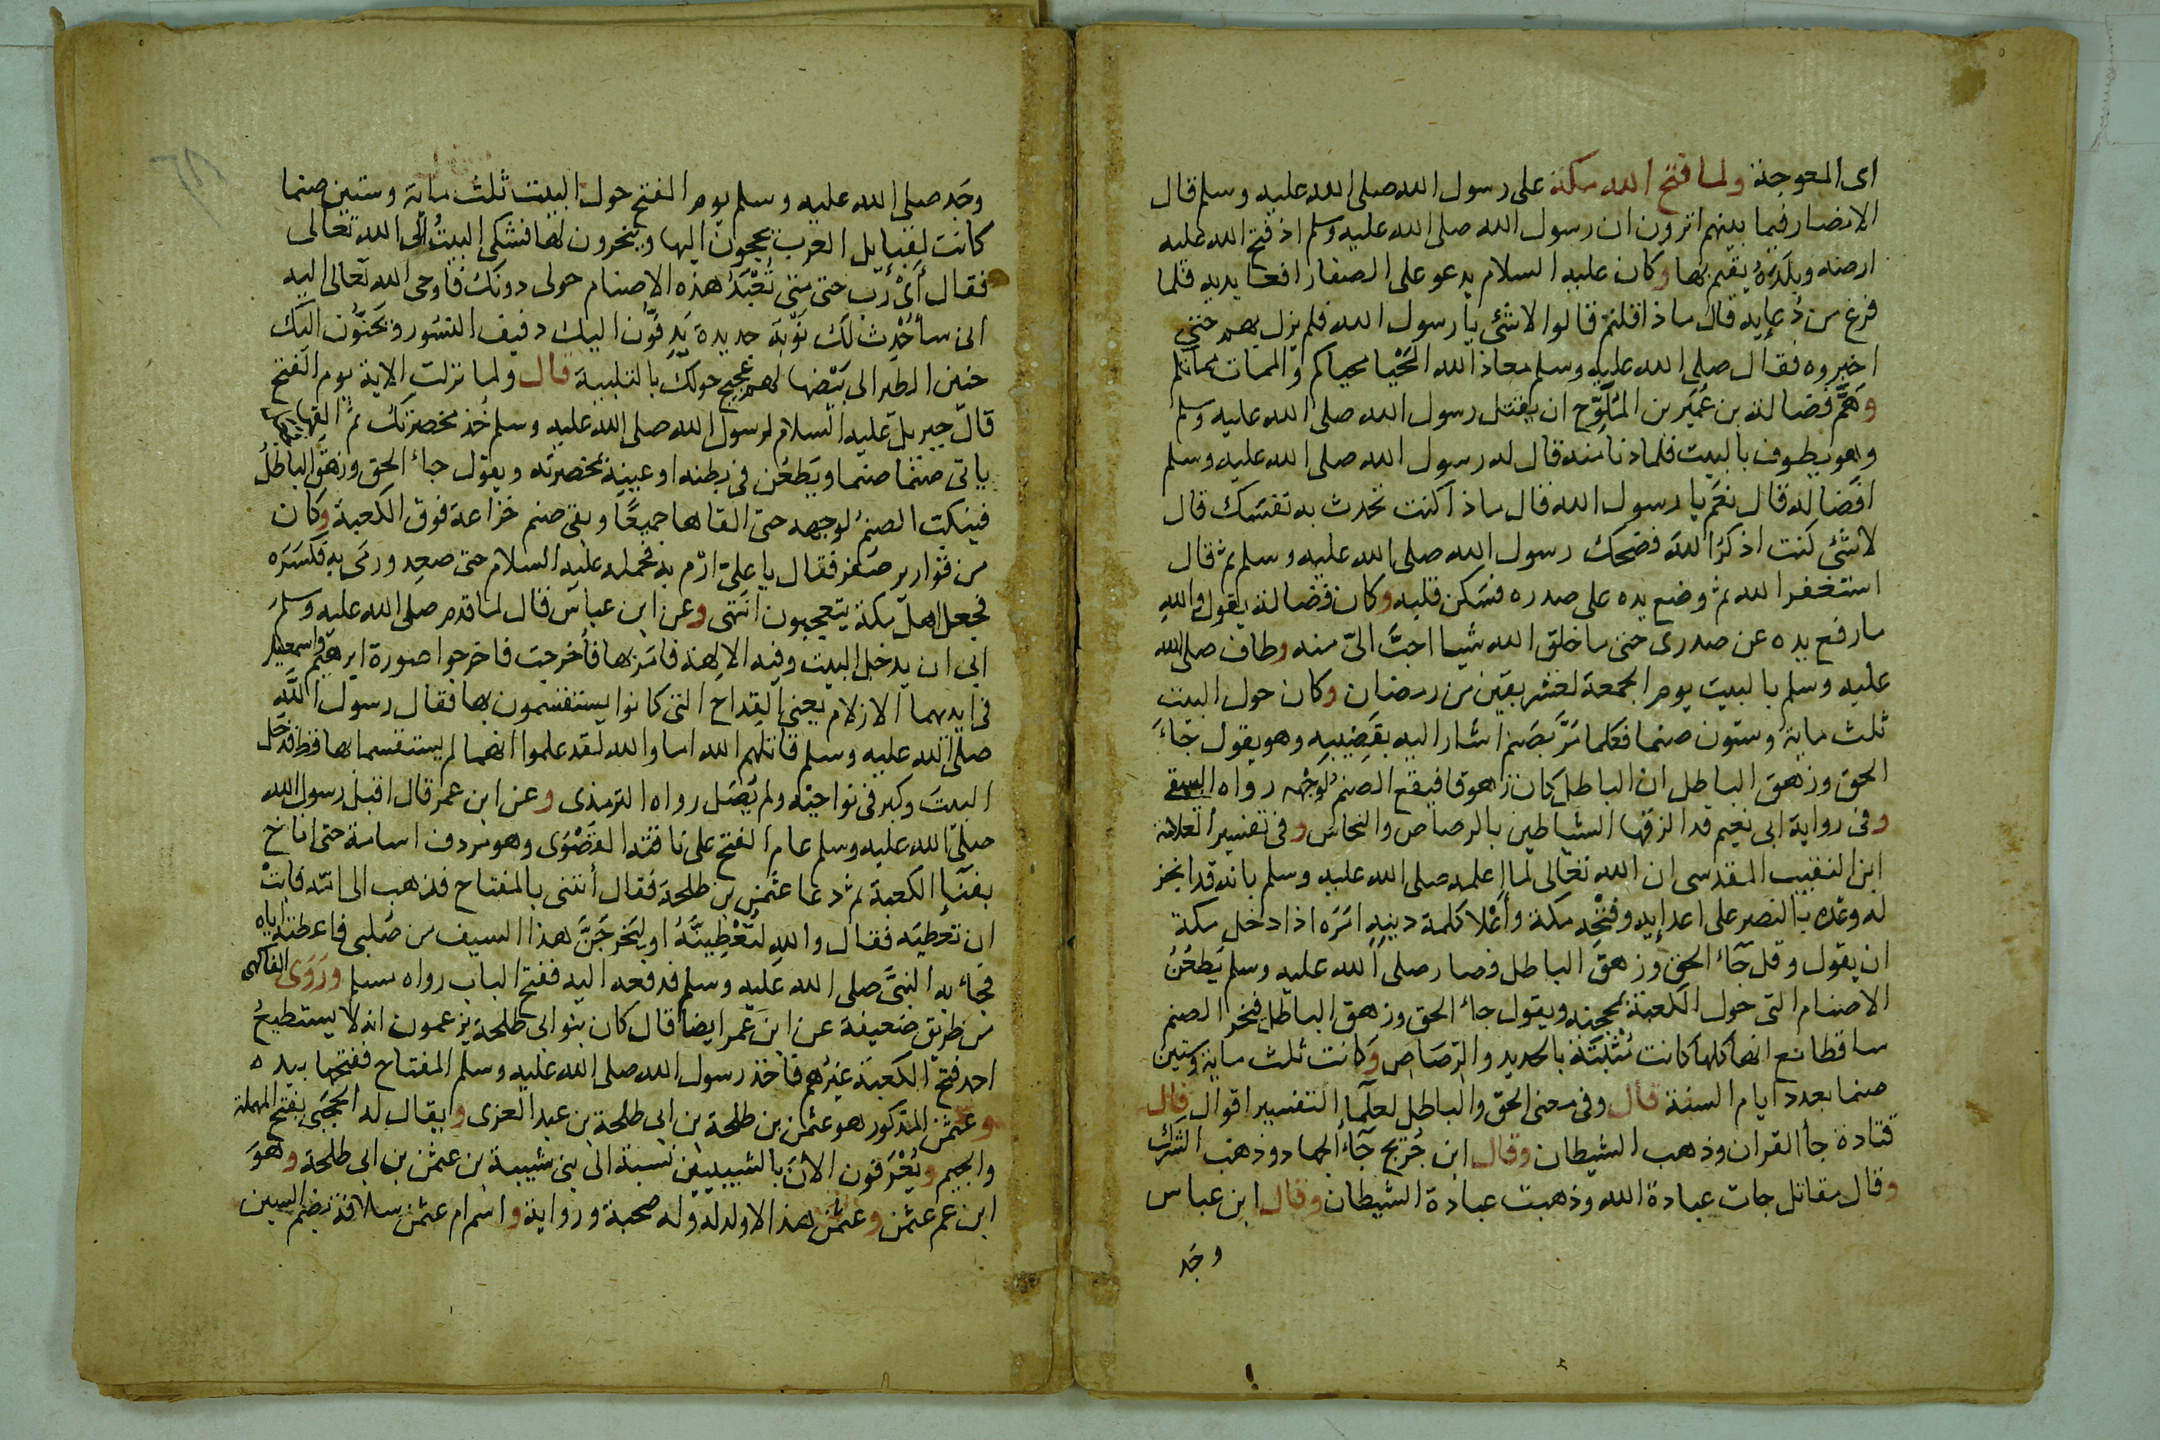 اى المعوجة ولما فتح الله مكة على رسول الله صلى الله عليه وسلم قال
الانصار فيما بينهم اترون ان رسول الله صلى الله عليه وسلم اذ فتح الله عليه
ارضه وبلده يقيم بها وكان عليه السلام يدعو على الصفا رافعا يديه فلما
فرغ من دعايه قال ماذا قلتم قالوا لا شئ يا رسول الله فلم يزل بهم حتى
اخبروه فقال صلى الله عليه وسلم معاذ الله المَحْيا محياكم والممات مماتكم
وهَمَّ فضالة بن عُمَير بن المُلَوِّح ان يقتل رسول الله صلى الله عليه وسلم
وهو يطوف بالبيت فلما دنا منه قال له رسول الله صلى الله عليه وسلم
افضالة قال نعم يا رسول الله قال ماذا كنت تحدث به نفسك قال
لا شئ كنت اذكرُ اللهَ فضحك رسول الله صلى الله عليه وسلم ثم قال
استغفر الله ثم وضع يده على صدره فسكن قلبه وكان فضالة يقول والله
ما رفع يده عن صدرى حتى ما خلق الله شيا احبَّ الىّ منه وطاف صلى الله
عليه وسلم بالبيت يوم الجمعة لعشر بقين من رمضان وكان حول البيت
ثلث ماية وستون صنما فكلما مَرَّ بصنم اشار اليه بقضيبه وهو يقول جاءَ
الحق وزهق الباطل ان الباطل كان زهوقا فيقع الصنم لوجهه رواه البيهقى
وفى رواية ابى نعيم قد الزقها الشياطين بالرصاص والنحاس وفى تفسير العلامة
ابن النقيب المقدسى ان الله تعالى لما اعلمه صلى الله عليه وسلم بانه قد انجز
له وعْده بالنصر على اعدايه وفتْحِه مكة وأعْلا كلمة دينِه امَرَه اذا دخل مكة
ان يقول وقل جآء الحق وزهق الباطل فصار صلى الله عليه وسلم يَطعُنُ
الاصنام التى حول الكعبة بمحجنه ويقول جاء الحق وزهق الباطل فيخر الصنم
ساقطا مع انها كلها كانت مُثبَتَة بالحديد والرّصَاص وكانت ثلث ماية وستين
صنما بعدد ايام السنة قال وفى معنى الحق والباطل لعلما التفسير اقوال قال
قتادة جا القران وذهب الشيطان وقال ابن جُريج جآء الجهاد وذهب الشرك
وقال مقاتل جات عبادة الله وذهبت عبادة الشيطان وقال ابن عباس
وجَد
وجَد صلى الله عليه وسلم يوم الفتح حول البيت ثلث ماية وستين صنما
كانت لقبايل العرب يحجون اليها وينحرون لها فشكى البيتُ الى الله تعالى
فقال أىْ رَبّ حتى متى تُعْبَدُ هذه الاصنام حولى دونك فاوحى الله تعالى اليه
انى سأُحْدِث لك نَوْبَة جديدة يَدِفُّون اليك دفيف النسور ويَحِنُّون اليك
حنين الطير الى بَيْضها لهم عجيج حولك بالتلبية قال ولما نزلت الاية يوم الفتح
قال جبريل عليه السلام لرسول الله صلى الله عليه وسلم خُذ مخصرتك ثم القها فجعل
ياتى صنما صنما ويَطعُن فى بطنه او عينِه بمخصرته ويقول جاء الحق وزهق الباطلُ
فينكت الصنم لوجهه حتى القاها جميعًا وبقى صنم خزاعة فوق الكعبة وكان
من قوارير صفر فقال يا علىّ ارْم به فحمله عليه السلام حتى صعِد ورمَى به فكسَرَه
فجعل اهل مكة يتعجبون انتهى وعن ابن عباس قال لما قدم صلى الله عليه وسلم
ابى ان يدخل البيت وفيه الالهة فامَر بها فأُخرجت فاخرجوا صورة ابرهيم واسمعيل
فى ايديهما الازلام يعنى القِداح التى كانوا يستقسمون بها فقال رسول الله
صلى الله عليه وسلم قاتلهم الله اما والله لقد علموا انهما لم يستقسما بها قط فدخل
البيتَ وكبر فى نواحيْه ولم يُصَل رواه الترمذى وعن ابن عمر قال اقبل رسول الله
صلى الله عليه وسلم عام الفتح على ناقته القصْوَى وهو مردف اسامة حتى اناخ
بفنآء الكعبة ثم دعا عثمن بن طلحة فقال أتنى بالمفتاح فذهب الى امّه فابتْ
ان تعْطيَه فقال والله لتُعْطِينَّهُ او ليَخرجَنَّ هذا السيف من صُلبى فاعطته اياه
فجاء به النبىَّ صلى الله عليه وسلم فدفعه اليه ففتح الباب رواه مسلم ورَوَى الفاكهى
من طريق ضعيفة عن ابن عُمر ايضا قال كان بنو ابى طلحة يزعمون انه لا يستطيعُ
احد فتح الكعبَة غيرُهم فاخذ رسول الله صلى الله عليه وسلم المفتاح ففتحها بيده
وعثمن المذكور هو عثمن بن طلحة بن ابى طلحة بن عبد العزى ويقال له الحَجَبى بفتح المهملة
والجيم ويُعْرَفون الانَ بالشيبيين نسبة الى بنى شيبة بن عثمن بن ابى طلحة وهوَ
ابن عم عثمن وعثمن هذا لا ولد له وله صحبة ورواية واسم ام عثمن سلافة بضم السين